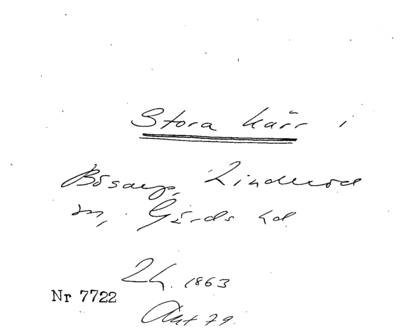 Stora Kärr i
Bösarp, Linderöd
sn, Gärds hd
Lh. 1863
Nr 7722
Akt 79.